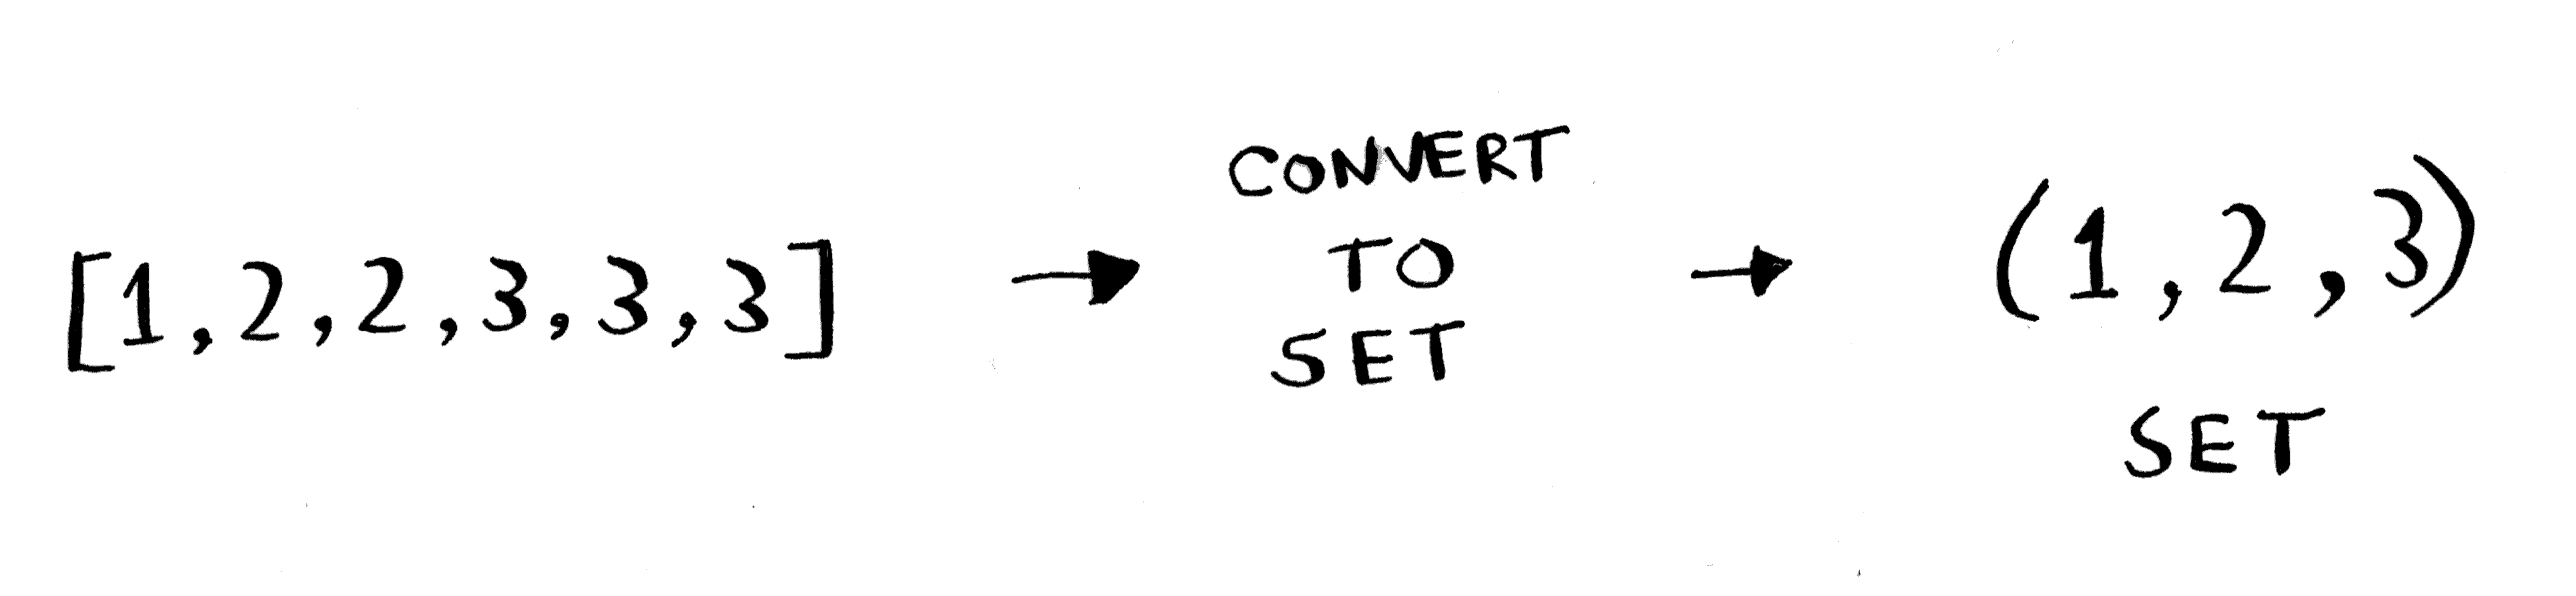 [1,2,2,3,3,3]
CONVERT
TO
SET
(1,2,3)
SET